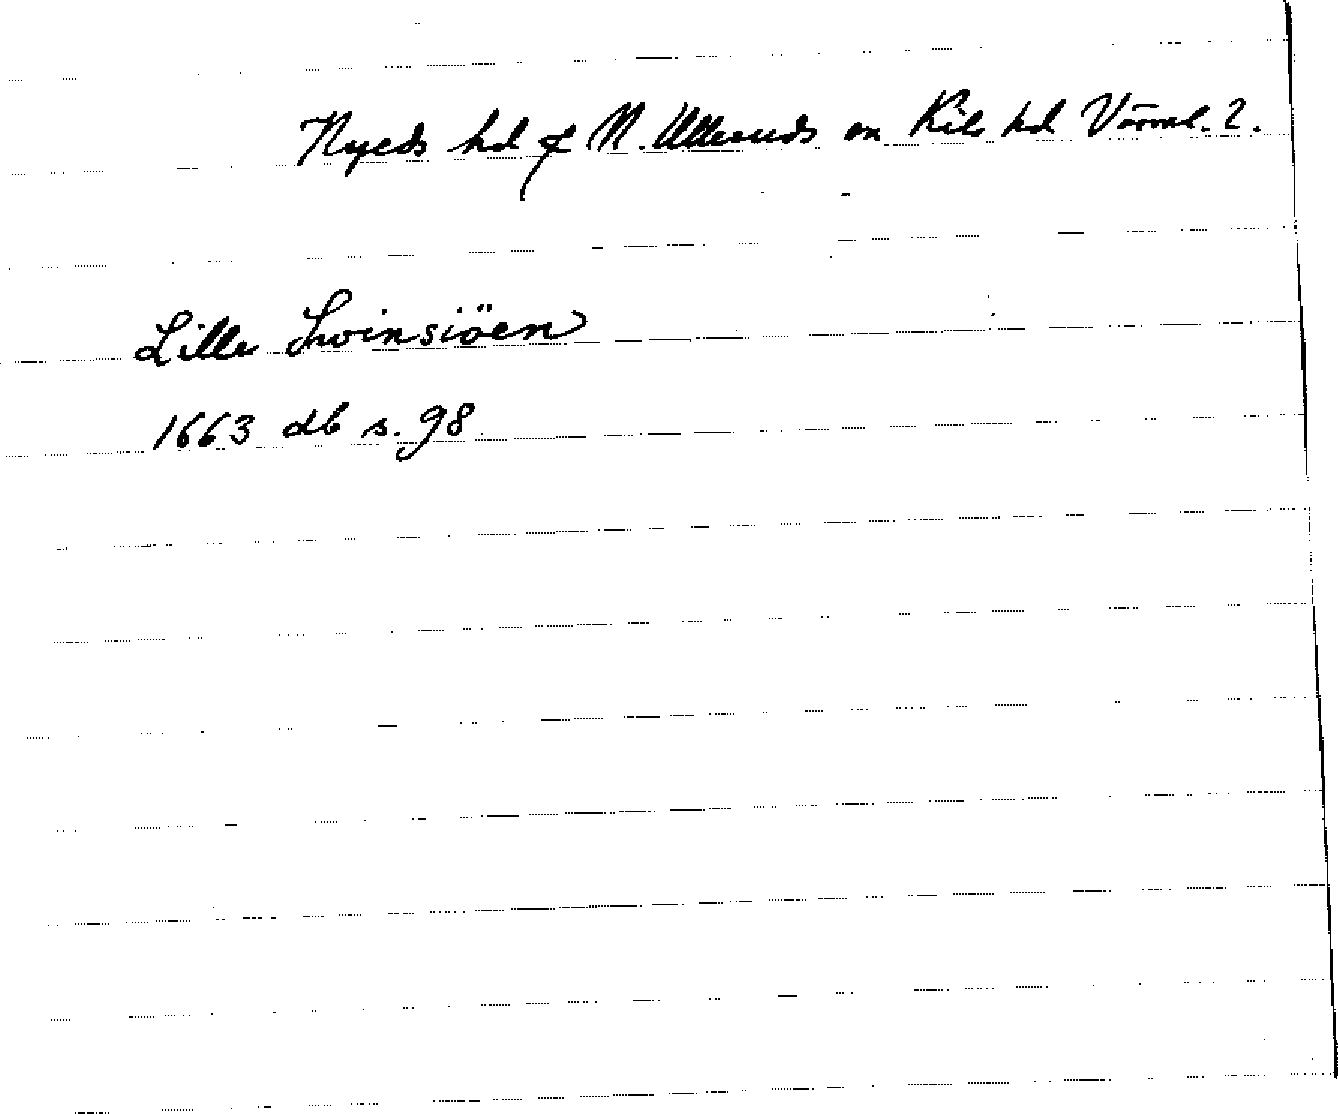 Nyeds hd f N. Ulleruds sn Kils hd Värml. 2.
Lille Swinsiöen
1663 db s. 98